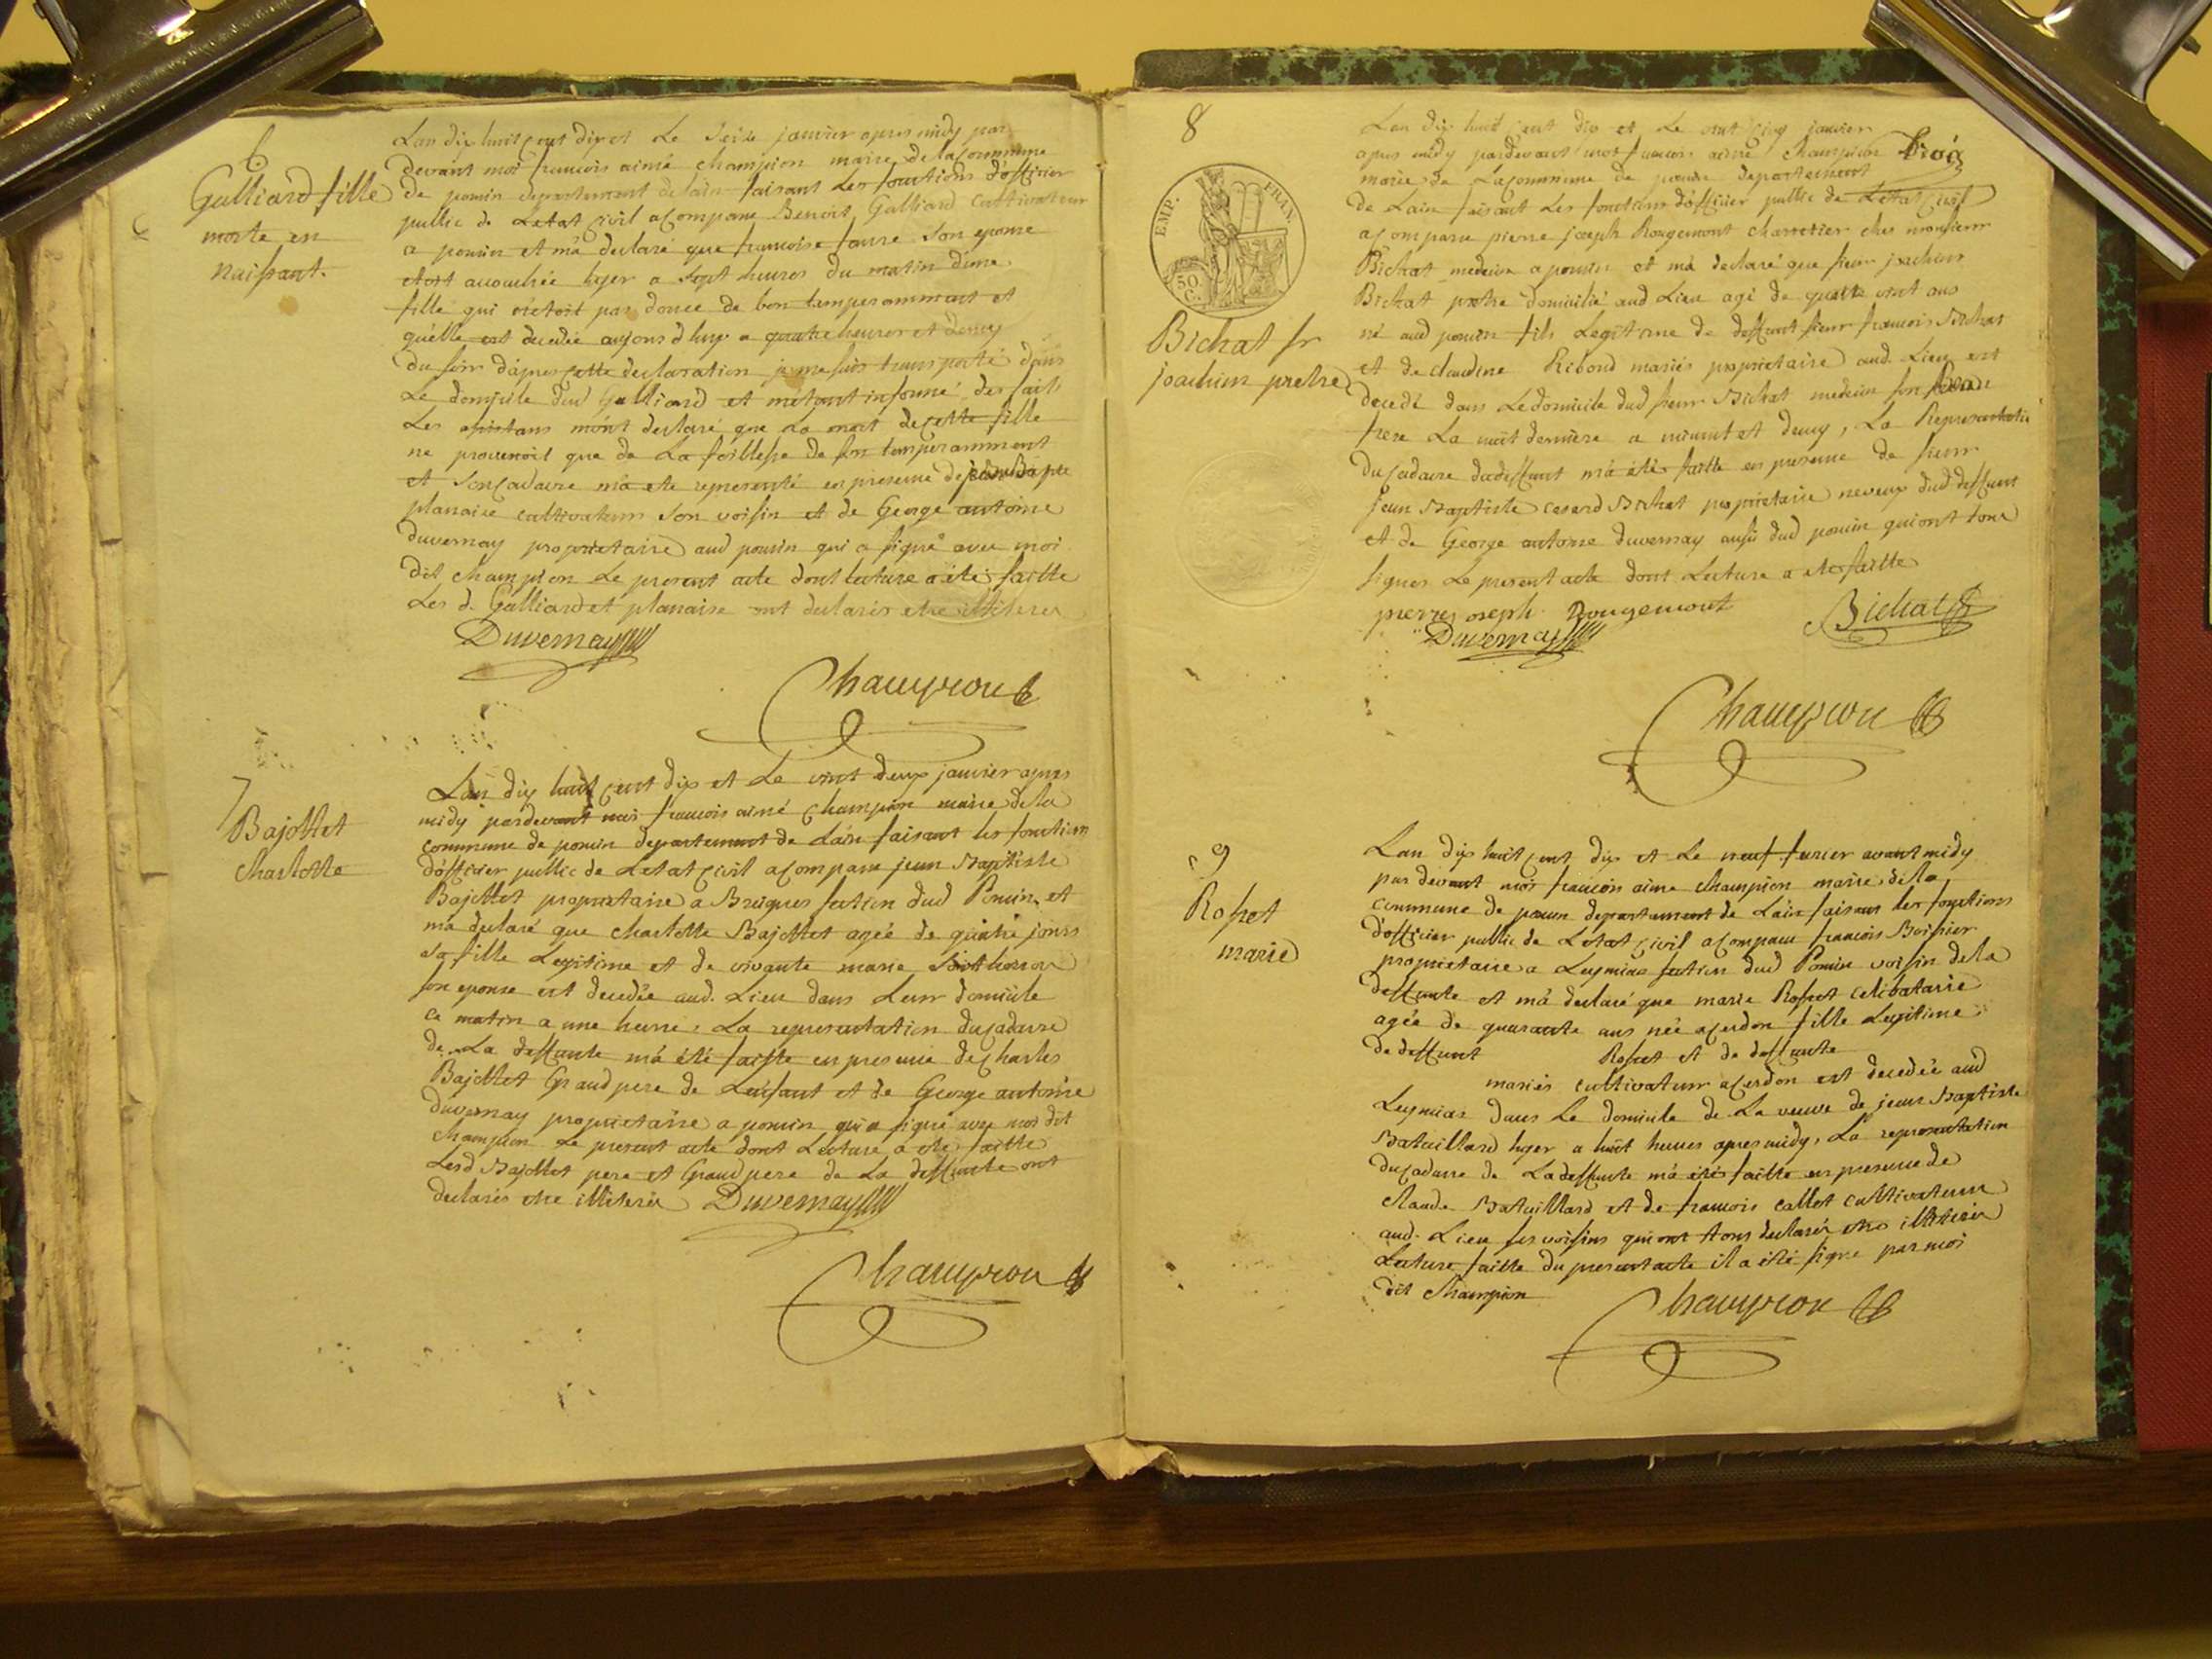 6
Galliard fille
morte en
naissant.
Lan dix huit cent dix et Le Seize janvier apres midy par
devant moi francois aimé champion maire de la Commune
de poncin departement de lain faisant Les fonctions d'officier
public de Letat Civil a Comparu Benoit Galliard Cultivateur
a poncin et m'a declaré que francoise favre Son epouse
etoit accouchée hyer a Sept heures du matin d'une
fille qui n'etoit pas douée de bon temperamment et
qu'elle est decedée aujourd huy a quatre heures et demy
du soir d'apres cette declaration je me suis transporté dans
Le domicile dud Galliard et m'etant informé des faits
Les assistans m'ont declaré que La mort de cette fille
ne provenoit que de La foiblesse de son temperamment
et Son Cadavre m'a ete representé en presence de jean Bapte
planaise cultivateur Son voisin et de George antoine
Duvernay proprietaire aud poncin qui a signé avec moi
dit champion Le present acte dont lecture a été faitte
Les d. Galliard et planaise ont declarés etre illiterés
Duvernay
Champion
7
Bajollet
charlotte
Lan dix huit cent dix et Le vint deux janvier apres
midy pardevant moi francois aimé Champion maire de la
commune de poncin departement de Lain faisant les fonction
d'officier public de Letat Civil a Comparu jean Baptiste
Bajollet proprietaire a Breignes section dud Poncin et
m'a declaré que charlotte Bajollet agée de quatre jours
Sa fille Legitime et de vivante marie
son epouse est decedée aud. Lieu dans Leur domicile
ce matin a une heure, La representation du Cadavre
de La deffunte m'a été faitte en presence de charles
Bajollet Grand pere de Lenfant et de George antoine
duvernay proprietaire a poncin qui a signé avec moi dit
champion Le present acte dont Lecture a ete faitte
Lesd Bajollet pere et Grand pere de La deffunte ont
declarés etre illiterés Duvernay
Champion
8
EMP. FRAN.
50 C.
Bichat sr
joachim pretre
trois
Lan dix huit cent dix et Le vint cinq janvier
apres midy pardevant moi francois aimé champion
maire de La Commune de poncin departement
de Lain faisant Les fonctions d'officier public de Letat Civil
a Comparu pierre joseph Rougemont charretier ches monsieur
Bichat medecin a poncin et m'a declaré que sieur joachim
Bichat pretre domicilié aud Lieu agé de quatre vint ans
né aud poncin fils Legitime de deffunt sieur francois Bichat
et de claudine Riboud mariés proprietaire aud. Lieu est
decedé dans Le domicile dud sieur Bichat medecin son
frere La nuit derniere a minuit et demy, La Representation
du Cadavre du deffunt m'a été faitte en presence de sieur
jean Baptiste cesard Bichat proprietaire neveux dud deffunt
et de George antoine duvernay aussi dud poncin qui ont tous
signes Le present acte dont Lecture a ete faitte
pierre joseph Rougemont
Bichat
Duvernay
Champion
9
Rosset
marie
Lan dix huit cent dix et Le neuf fevrier avant midy
par devant moi francois aimé champion maire de la
commune de poncin departement de Lain faisant les fonctions
d'officier public de Letat Civil a Comparu francois Boissier
proprietaire a Leymiac section dud Poncin voisin de la
deffunte et m'a declaré que marie Rosset celibataire
agée de quarante ans née a Cerdon fille Legitime
de deffunt Rosset et de deffunte
mariés cultivateurs a Cerdon est decedée aud
Leymiac dans le domicile de La veuve de jean Baptiste
Bataillard hyer a huit heures apres midy, La representation
du Cadavre de La deffunte m'a été faitte en presence de
claude Bataillard et de francois callet cultivateurs
aud. Lieu ses voisins qui ont tous declarés etre illiterés
Lecture faitte du present acte il a été signé par moi
dit champion
Champion